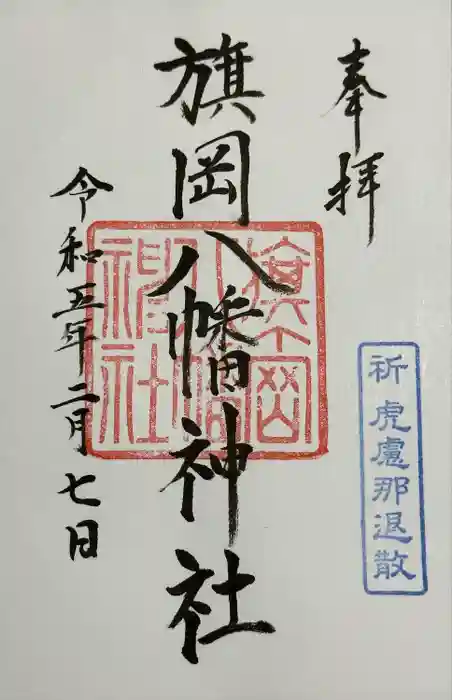 奉拝
祈虎慮那退散
旗岡八幡神社
旗岡
八幡
神社
令和五年二月七日